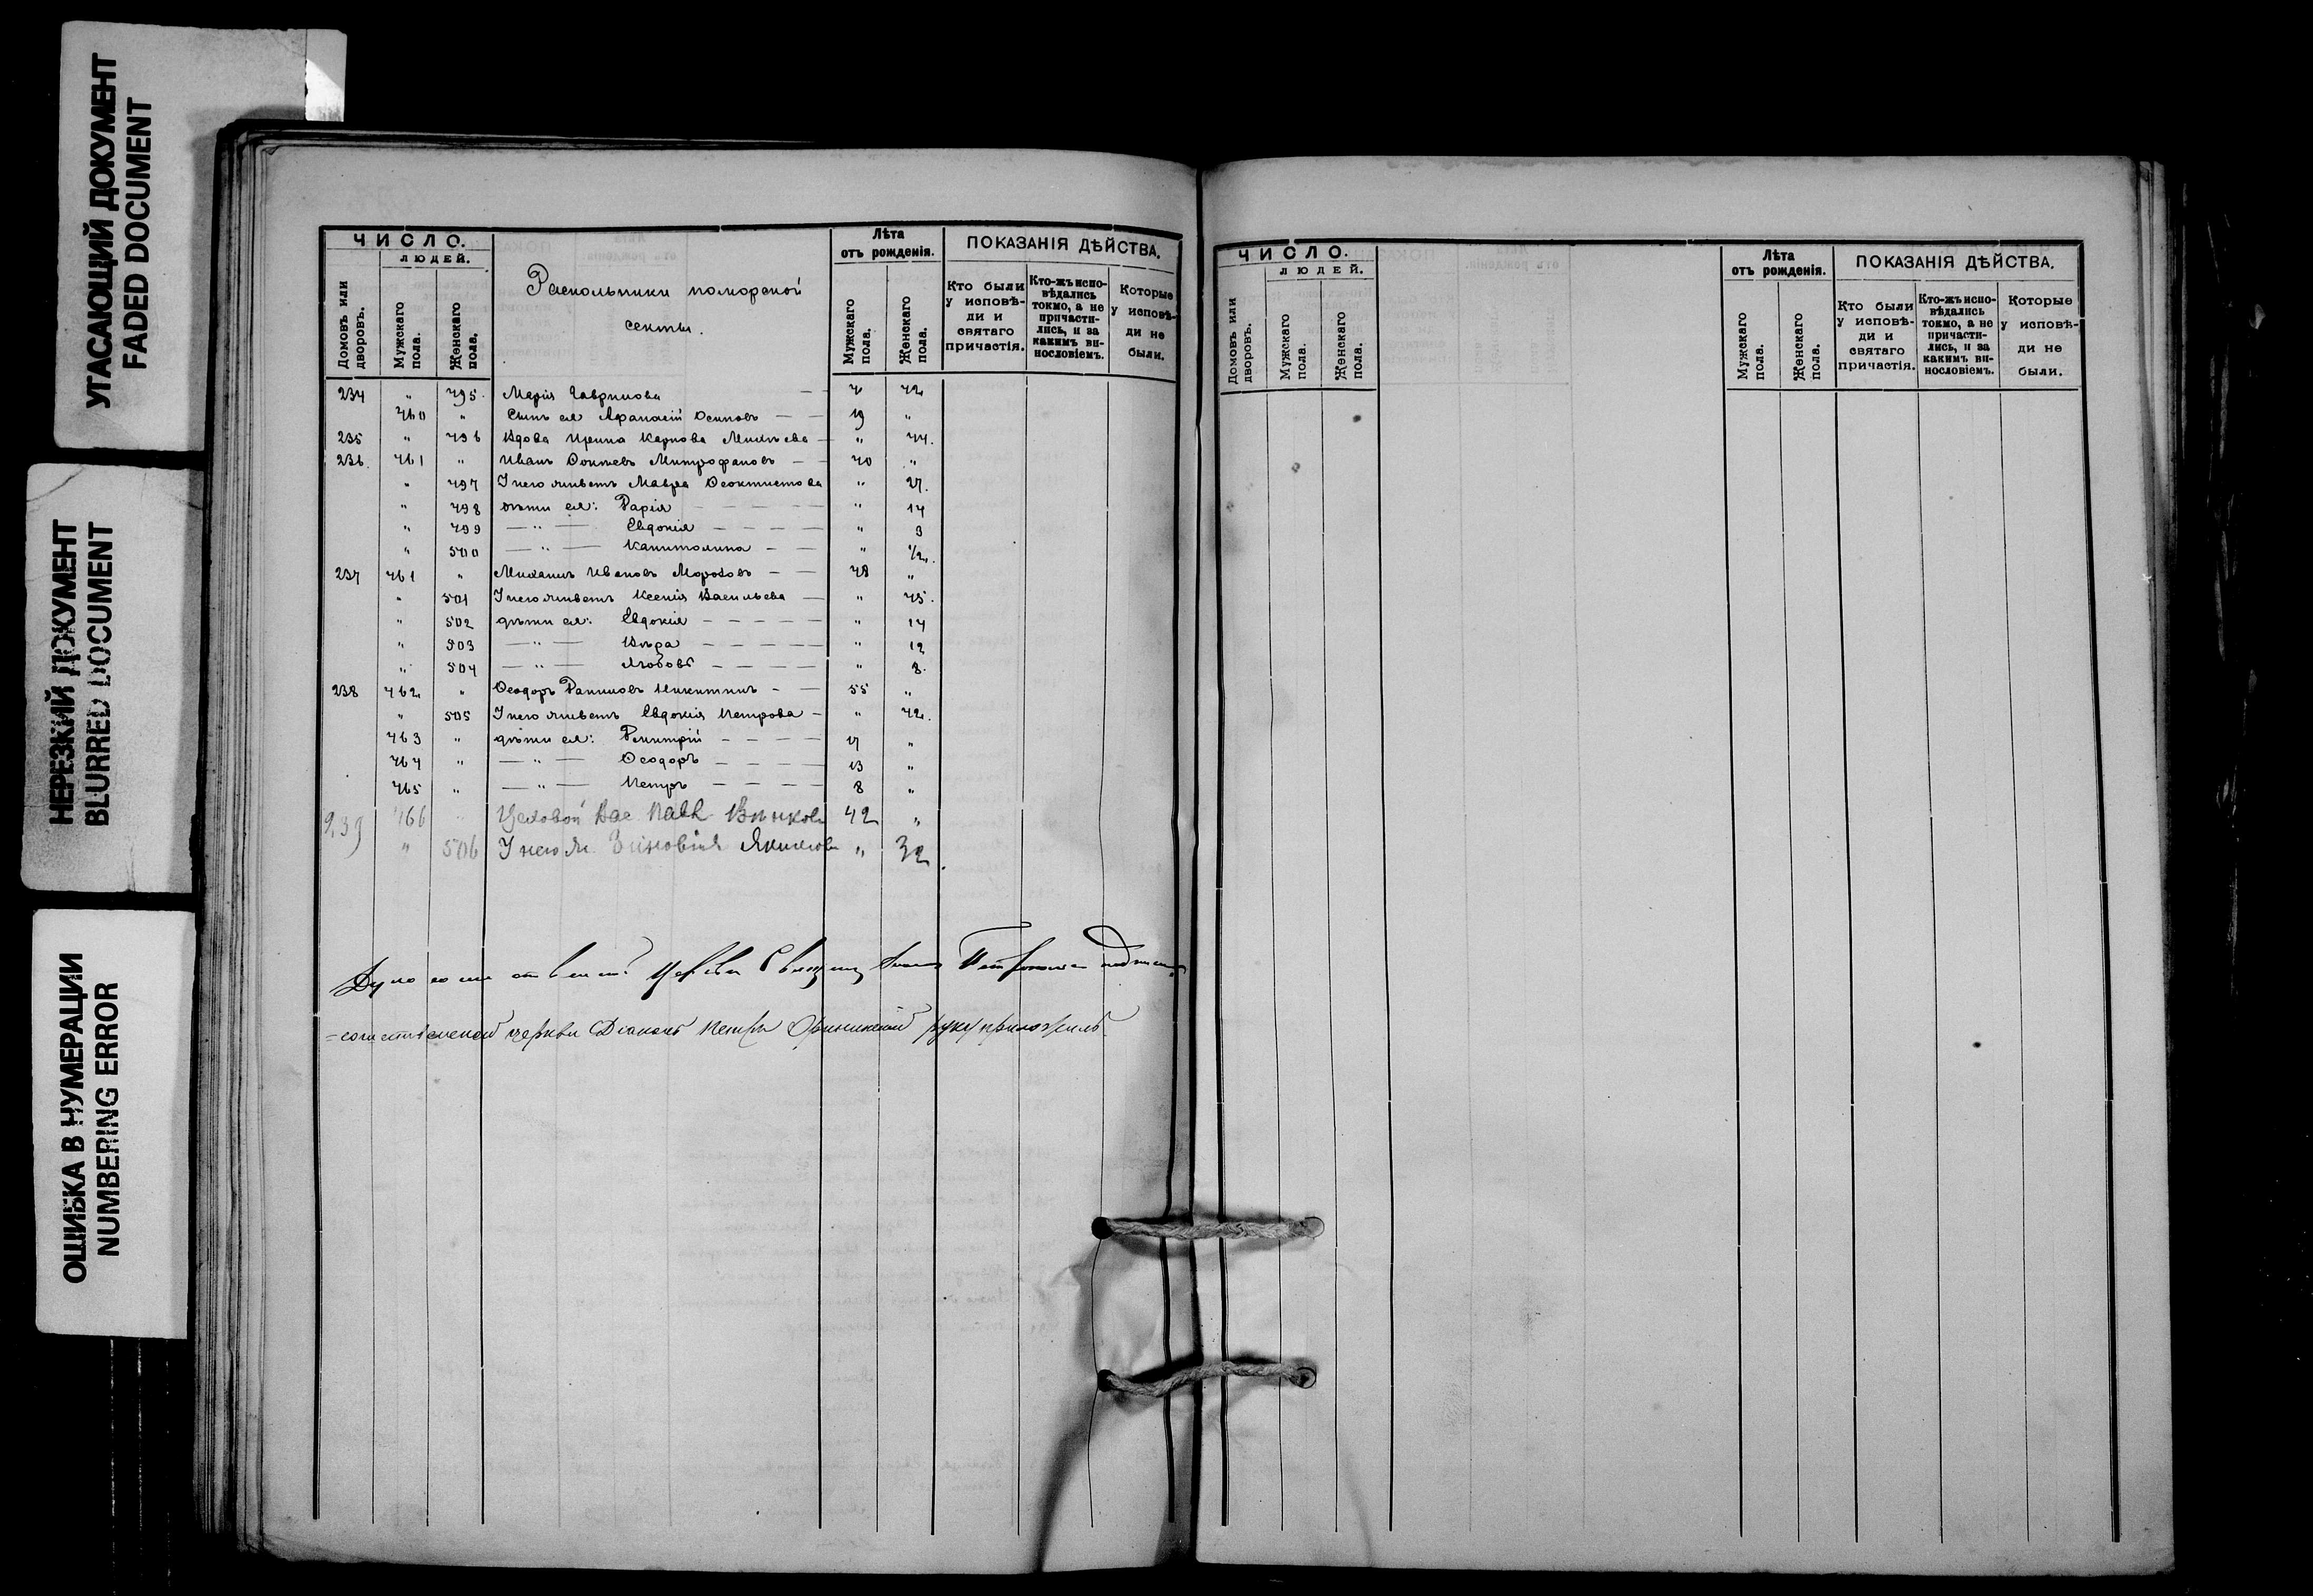 УГАСАЮЩИЙ ДОКУМЕНТ
FADED DOCUMENT
НЕРЕЗКИЙ ДОКУМЕНТ
BLURRED DOCUMENT
ОШИБКА В НУМЕРАЦИИ
NUMBERING ERROR
ЧИСЛО.
ЛЮДЕЙ.
Домовъ или дворовъ.
Мужскаго пола.
Женскаго пола.
Раскольники поморской
секты.
Лѣта
отъ рожденія.
Мужскаго пола.
Женскаго пола.
ПОКАЗАНІЯ ДѢЙСТВА.
Кто были
у исповѣ-
ди и
святаго
причастія.
Кто-жъ испо-
вѣдались
токмо, а не
причасти-
лись, и за
какимъ ви-
нословіемъ.
Которые
у исповѣ-
ди не
были.
234 " 495 Марія Гаврилова 42
460 " Сынъ ея Афанасій Осиповъ 19 "
235 " 496 Вдова Ирина Карпова " 44.
236. 461 " Иванъ Митрофановъ 40 "
" 497 У него живетъ Мавра Ѳеоктистова " 27.
" 498 дѣти ея: Дарія " 14
" 499 — " — Евдокія " 9
" 500 — " — Капитолина " 1/2.
237 461 " Михаилъ Ивановъ Морозовъ 48 "
" 501 У него живетъ Ксенія Васильева " 45.
" 502 дѣти ея: Евдокія " 14
" 503 — " — Вѣра " 12
" 504 — " — Любовь " 8.
238 462 " Ѳеодоръ Даниловъ Никитинъ 55 "
" 505 У него живетъ Евдокія Петрова " 42.
463 " дѣти ея: Димитрій 17 "
464 " — " — Ѳеодоръ 13 "
465 " — " — Петръ 8 "
239 466 Цеховой Вас Павл 42 "
" 506 У него ж. Зиновія Якимова " 32
церкви
церкви Діаконъ Петръ руку приложилъ.
ЧИСЛО.
ЛЮДЕЙ.
Домовъ или дворовъ.
Мужскаго пола.
Женскаго пола.
Лѣта
отъ рожденія.
Мужскаго пола.
Женскаго пола.
ПОКАЗАНІЯ ДѢЙСТВА.
Кто были
у исповѣ-
ди и
святаго
причастія.
Кто-жъ испо-
вѣдались
токмо, а не
причасти-
лись, и за
какимъ ви-
нословіемъ.
Которые
у исповѣ-
ди не
были.